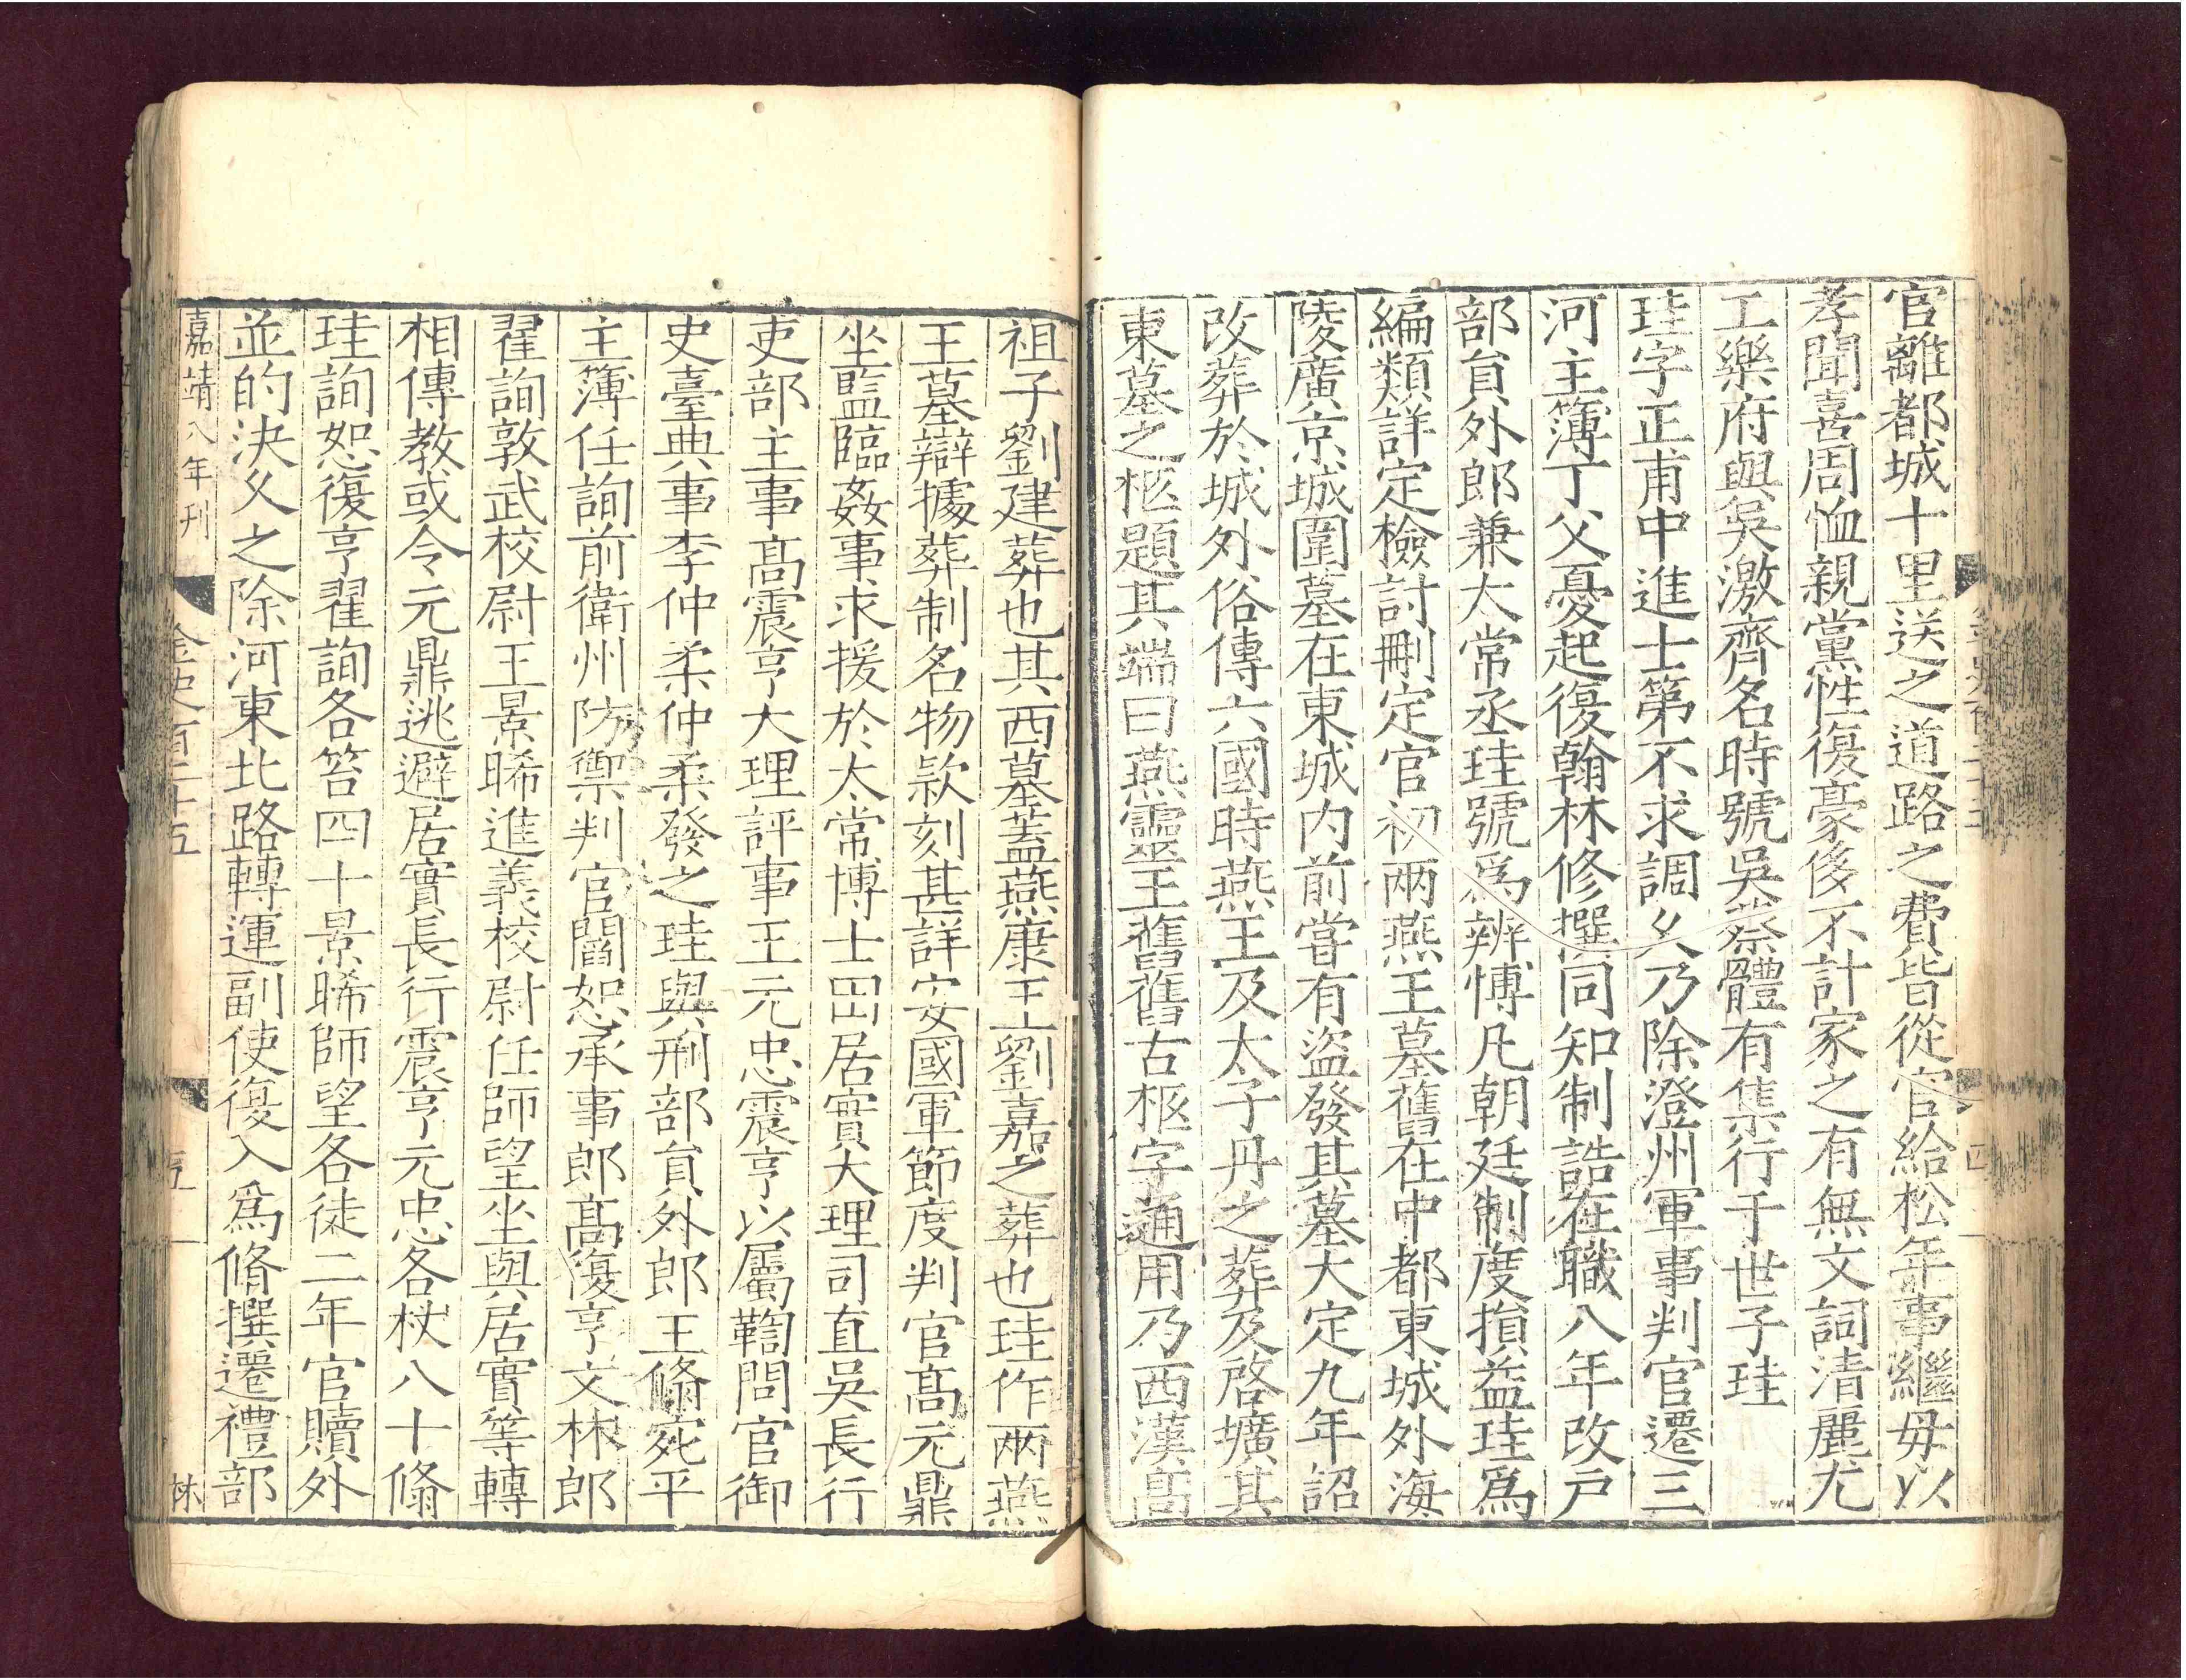 官離都城十里送之道路之費皆從官給松年事繼母以
孝聞喜周恤親黨性復豪侈不計家之有無文詞清麗尤
工樂府與吳激齊名時號吳蔡體有集行于世子珪
珪字正甫中進士第不求調久乃除澄州軍事判官遷三
河主簿丁父憂起復翰林修撰同知制誥在職八年改戶
部員外郎兼太常丞珪號爲辨博凡朝廷制度損益珪爲
編類詳定檢討刪定官初兩燕王墓舊在中都東城外海
陵廣京城圍墓在東城内前嘗有盜發其墓大定九年詔
改葬於城外俗傳六國時燕王及太子丹之葬及啓壙其
東墓之柩題其端曰燕靈王舊舊古柩字通用乃西漢髙
祖子劉建葬也其西墓蓋燕康王劉嘉之葬也珪作兩燕
王墓辯據葬制名物款刻甚詳安國軍節度判官髙元鼎
坐監臨姦事求援於太常博士田居實大理司直吳長行
吏部主事髙震亨大理評事王元忠震亨以屬鞫問官御
史臺典事李仲柔仲柔發之珪與刑部員外郎王脩宛平
主簿任詢前衛州防禦判官閻恕承事郎髙復亨文林郎
翟詢敦武校尉王景晞進義校尉任師望坐與居實等轉
相傳教或令元鼎逃避居實長行震亨元忠各杖八十脩
珪詢恕復亨翟詢各笞四十景晞師望各徒二年官贖外
並的決久之除河東北路轉運副使復入爲脩撰遷禮部
嘉靖八年刊
金史百二十五
五
林